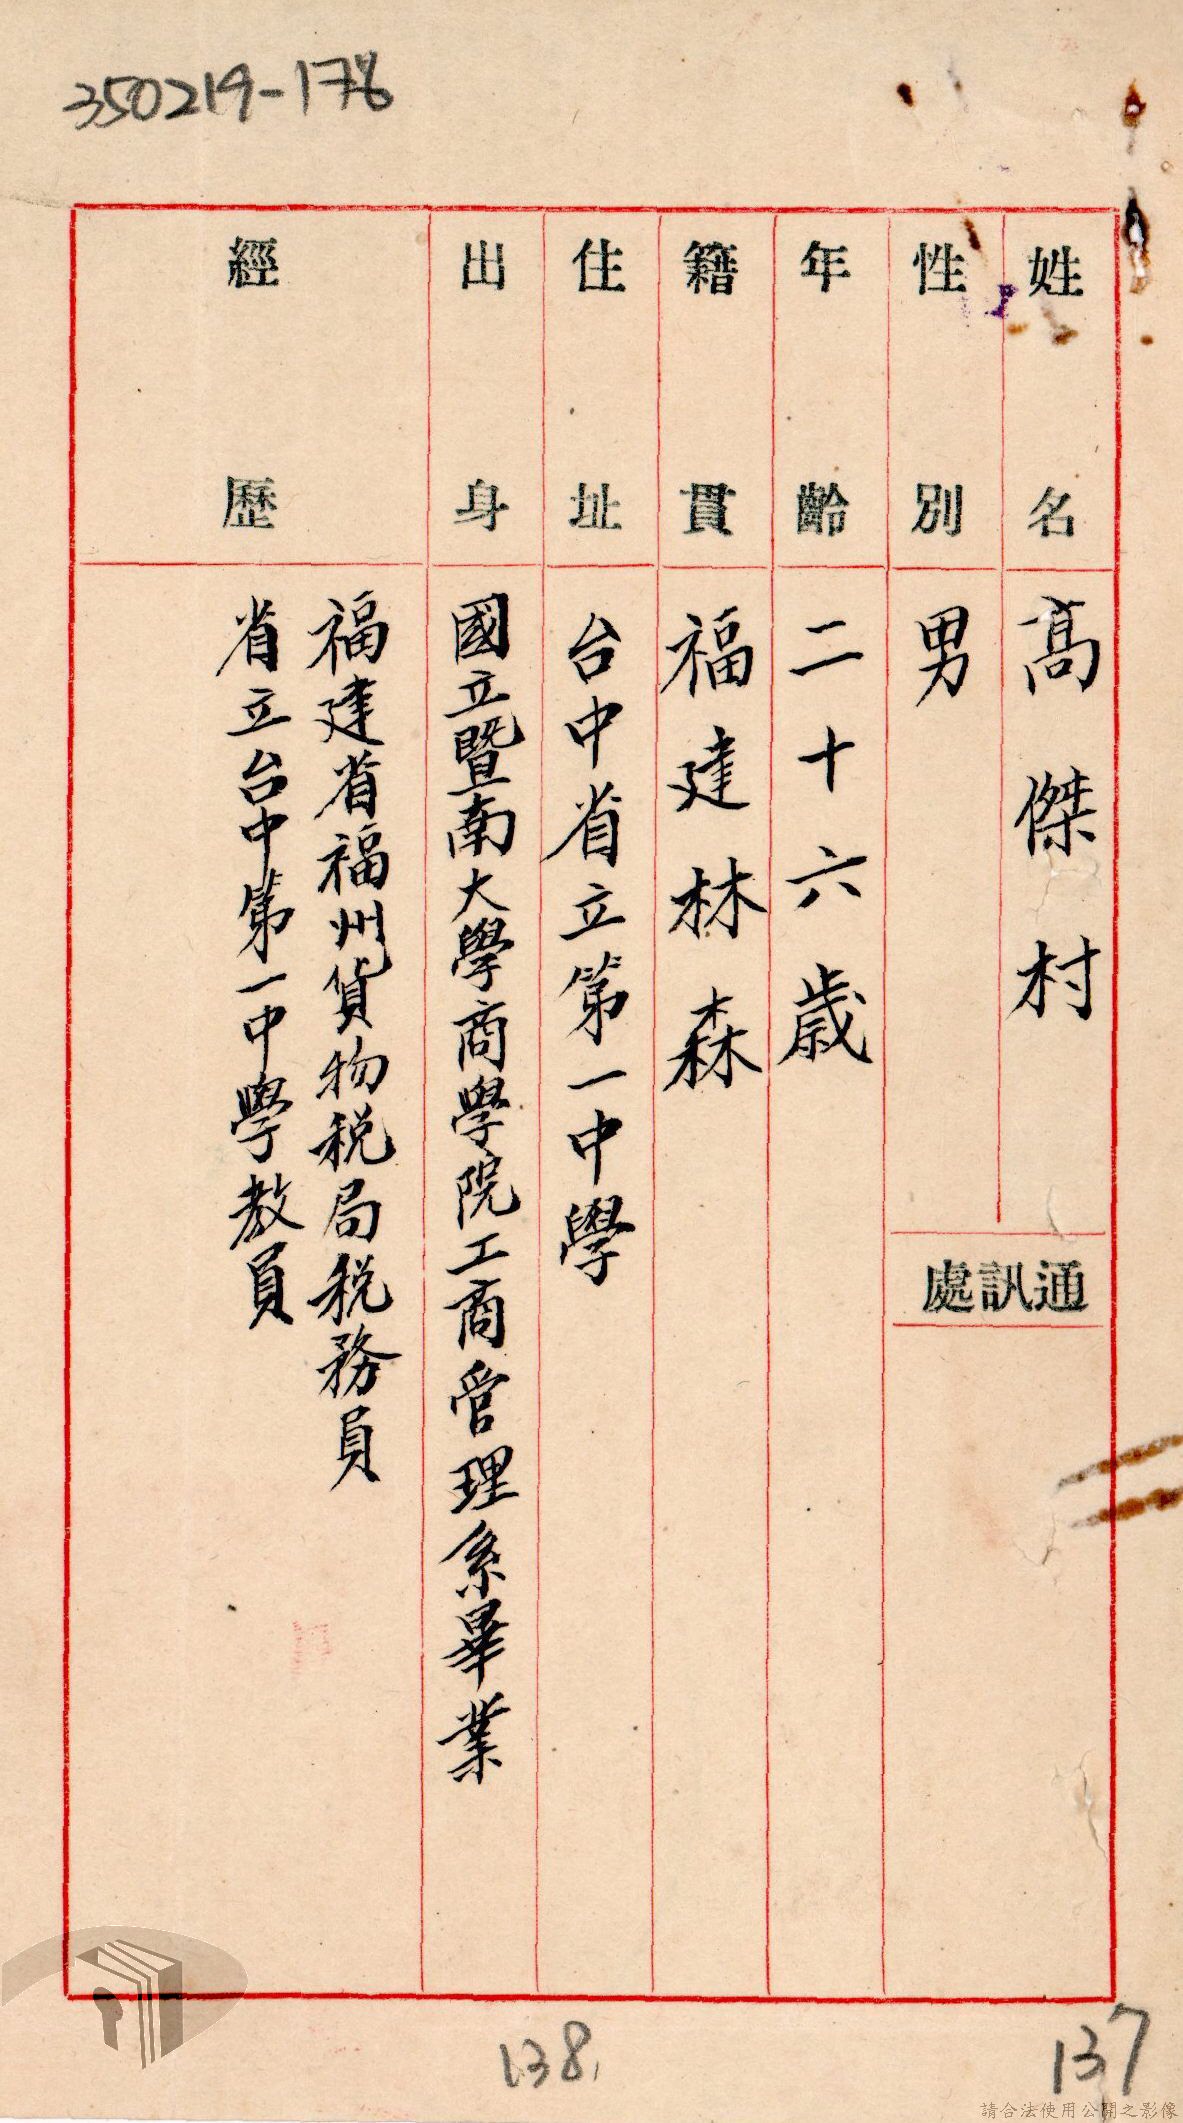 350219-176
姓名
高傑村
性別
男
通訊處
年齡
二十六歲
籍貫
福建林森
住址
台中省立第一中學
出身
國立暨南大學商學院工商管理系畢業
經歷
福建省福州貨物稅局稅務員
省立台中第一中學教員
138
137
請合法使用公開之影像